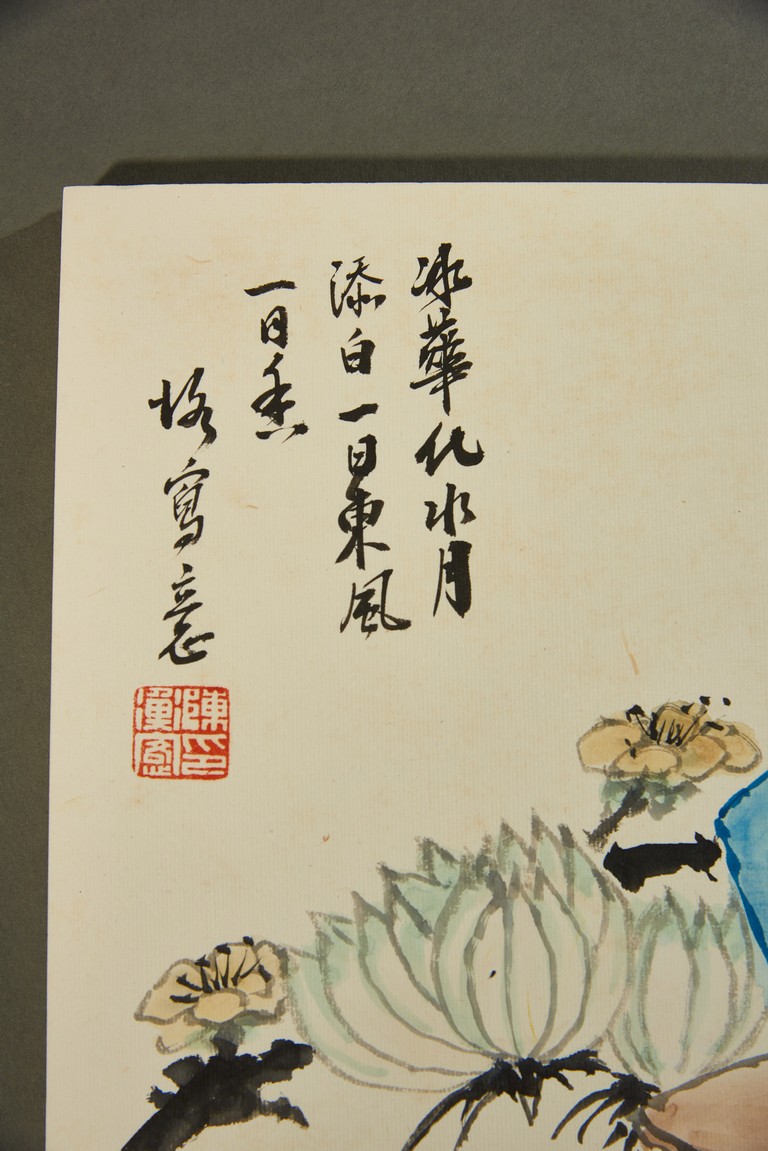 冰華化水月
添白一日東風
一日香
寫意
陳印漢